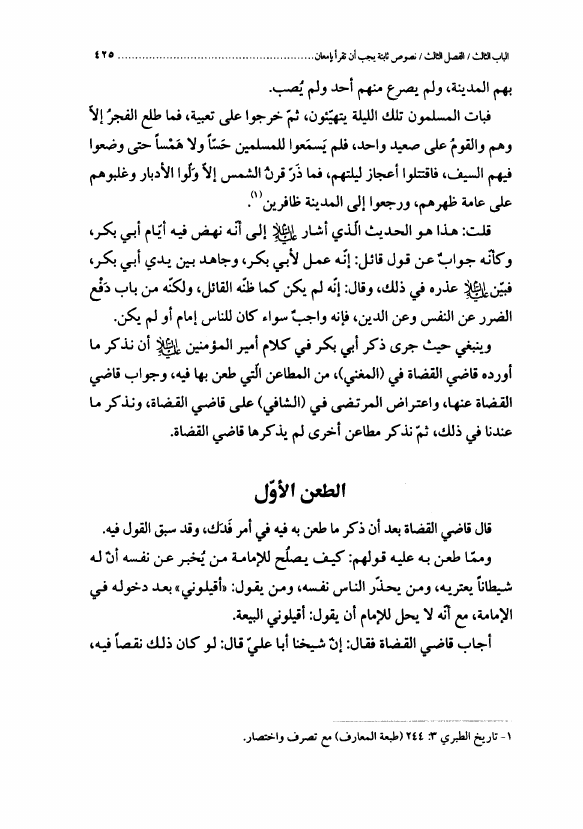 الباب الثالث / الفصل الثالث / نصوص ثابتة يجب أن تقرأ بإمعان ........................................................ ٤٢٥
بهم المدينة، ولم يصرع منهم أحد ولم يُصب.
فبات المسلمون تلك الليلة يتهيّئون، ثمّ خرجوا على تعبية، فما طلع الفجرُ إلاّ
وهم والقومُ على صعيد واحد، فلم يَسمَعوا للمسلمين حَسّاً ولا هَمْساً حتى وضعوا
فيهم السيف، فاقتتلوا أعجاز ليلتهم، فما ذَرّ قرنُ الشمس إلاّ وَلّوا الأدبار وغلبوهم
على عامة ظهرهم، ورجعوا إلى المدينة ظافرين(١).
قلت: هذا هو الحديث الّذي أشار عليه السلام إلى أنّه نهض فيه أيّام أبي بكر،
وكأنّه جوابٌ عن قول قائل: إنّه عمل لأبي بكر، وجاهد بين يدي أبي بكر،
فبيّن عليه السلام عذره في ذلك، وقال: إنّه لم يكن كما ظنّه القائل، ولكنّه من باب دَفْع
الضرر عن النفس وعن الدين، فإنه واجبٌ سواء كان للناس إمام أو لم يكن.
وينبغي حيث جرى ذكر أبي بكر في كلام أمير المؤمنين عليه السلام أن نذكر ما
أورده قاضي القضاة في (المغني)، من المطاعن الّتي طعن بها فيه، وجواب قاضي
القضاة عنها، واعتراض المرتضى في (الشافي) على قاضي القضاة، ونذكر ما
عندنا في ذلك، ثمّ نذكر مطاعن أخرى لم يذكرها قاضي القضاة.
الطعن الأوّل
قال قاضي القضاة بعد أن ذكر ما طعن به فيه في أمر فَدَك، وقد سبق القول فيه.
وممّا طعن به عليه قولهم: كيف يصلُح للإمامة من يُخبر عن نفسه أنّ له
شيطاناً يعتريه، ومن يحذّر الناس نفسه، ومن يقول: «أقيلوني» بعد دخوله في
الإمامة، مع أنّه لا يحل للإمام أن يقول: أقيلوني البيعة.
أجاب قاضي القضاة فقال: إنّ شيخنا أبا عليّ قال: لو كان ذلك نقصاً فيه،
١- تاريخ الطبري ٣: ٢٤٤ (طبعة المعارف) مع تصرف واختصار.